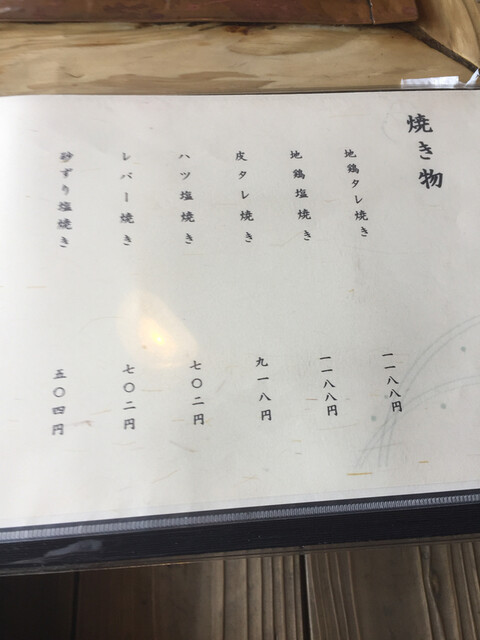 焼き物
地鶏タレ焼き
一一八八円
地鶏塩焼き
一一八八円
皮タレ焼き
九一八円
ハツ塩焼き
七〇二円
レバー焼き
七〇二円
砂ずり塩焼き
五〇四円